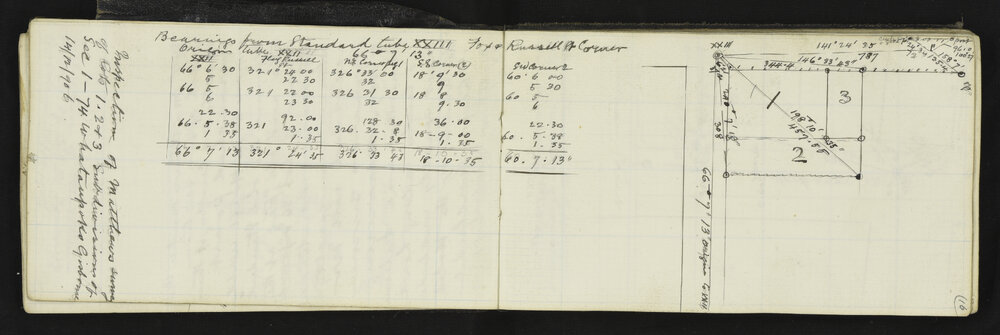 Inspection of Matthews survey
of Lots 1. 2 & 3 Subdivisions of
Sec 1 - 74 Whataupoko Gisborne
14/12/1906
Bearings from Standard tube XXIII Fox & Russell St Corner
Origin tube XXII 66° 7' 13"
XXIII
66° 6' 30 321° 24 00 326° 33' 00 18° 9' 30 60° 6 00
5 22.30 32 9 5 30
66 5 321 22 00 326 31 30 18° 8 60 5
6 23 30 32 9.30 6
22.30 92.00 128 30 36.00 22.30
66.5.38 321 23.00 326.32.8 18-9-00 60.5.38
1 35 1.35 1.35 1.35
66° 7' 13 321° 24' 35 326° 33 43 18-10-35 60.7.13"
SW Corner 2
XXIII
141° 24' 35
146° 33' 43"
344.4
781
1
3
2
198° 10' 35"
457.58
308
66° 7' 13" Origin to XXII
16